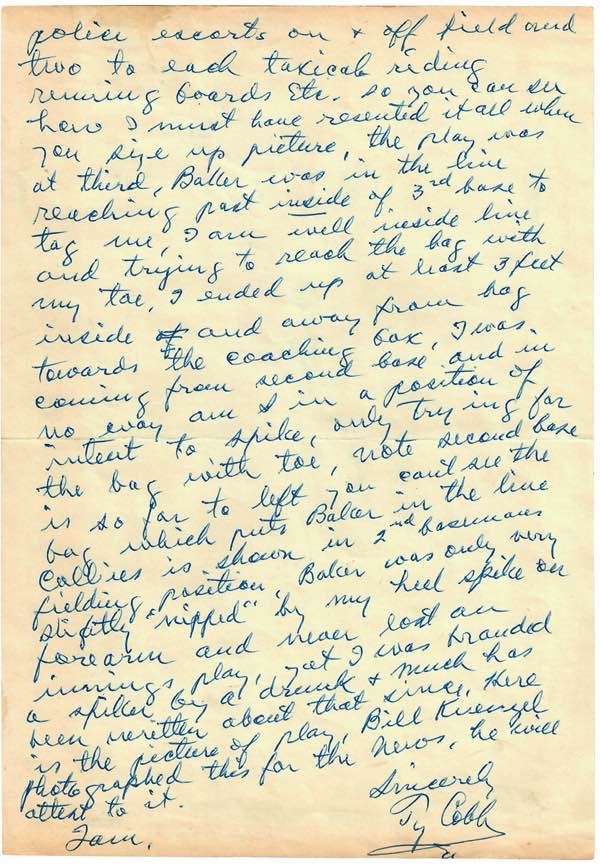 police escorts on + off field and
two to each taxicab riding
running boards Etc. so you can see
how I must have resented it all when
you size up picture, the play was
at third, Baker was in the line
reaching past inside of 3rd base to
tag me, I am well inside line
and trying to reach the bag with
my toe, I ended up at least 3 feet
inside and away from bag
towards the coaching box, I was
coming from second base and in
no way am I in a position of
intent to spike, only trying for
the bag with toe, note second base
is so far to left you can't see the
bag which puts Baker in the line
Collies is shown in 2nd basemans
fielding position, Baker was only very
slightly "nipped" by my heel spike on
forearm and never lost an
innings play, yet I was branded
a spiker by a drunk + much has
been written about that since, Here
is the picture of play, Bill Kuenzel
photographed this for the News, he will
attest to it.
Sincerely
I am,
Ty Cobb